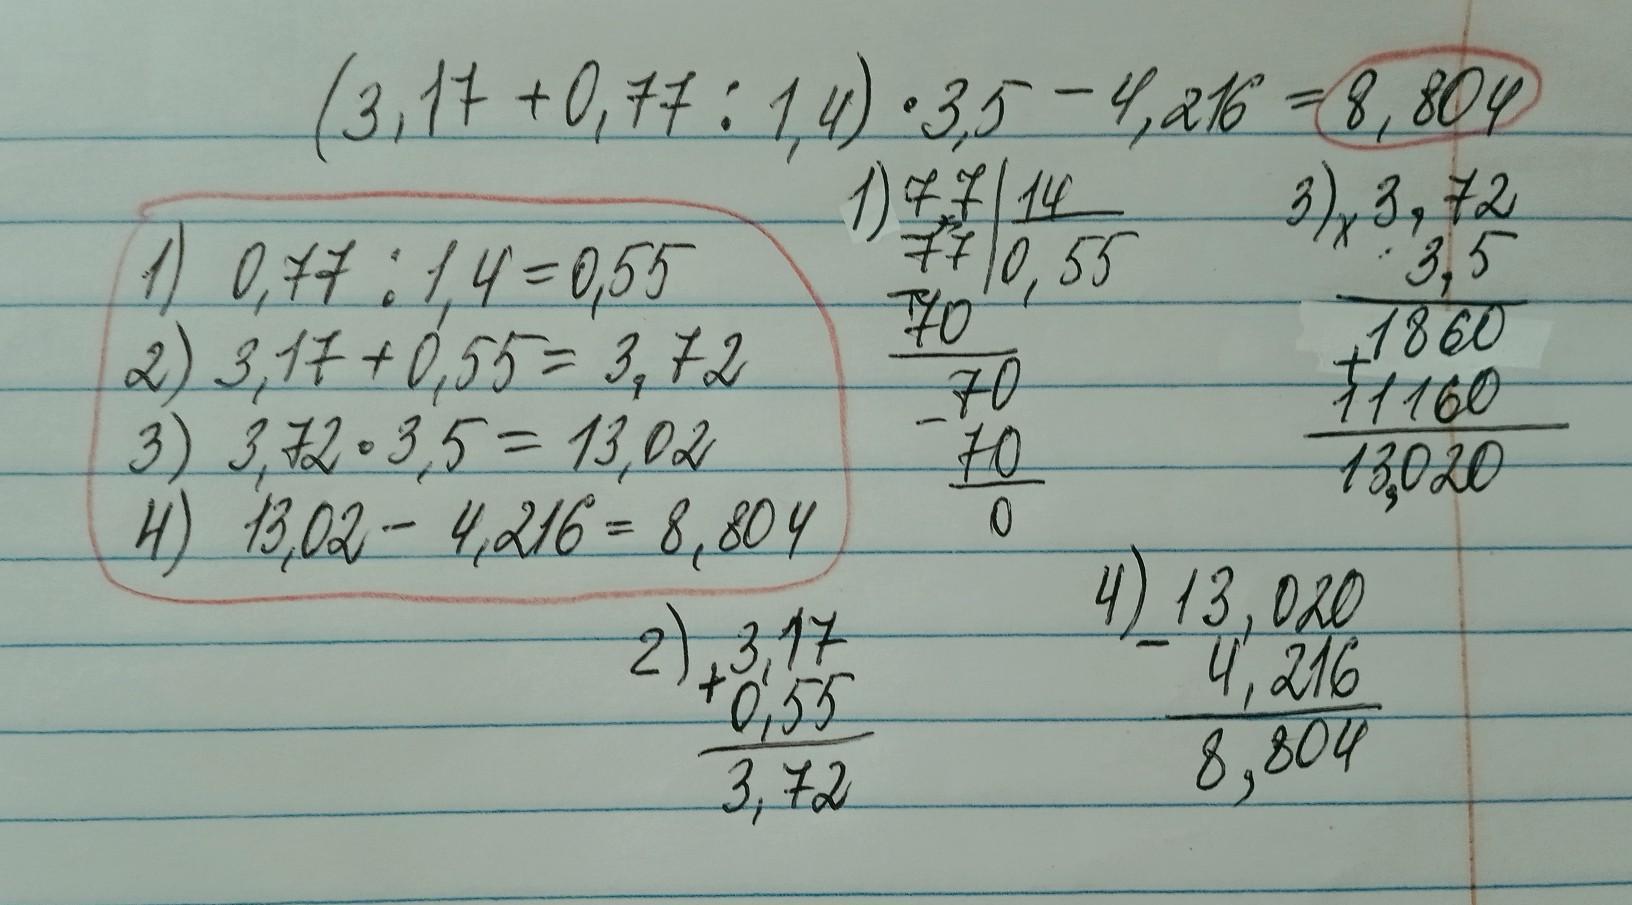 (3,17 + 0,77 : 1,4) · 3,5 - 4,216 = 8,804
1) 0,77 : 1,4 = 0,55
2) 3,17 + 0,55 = 3,72
3) 3,72 · 3,5 = 13,02
4) 13,02 - 4,216 = 8,804
1) 77 | 14
77 | 0,55
- 70
70
- 70
0
3) x 3,72
3,5
+ 1860
11160
13,020
2) + 3,17
0,55
3,72
4) - 13,020
4,216
8,804